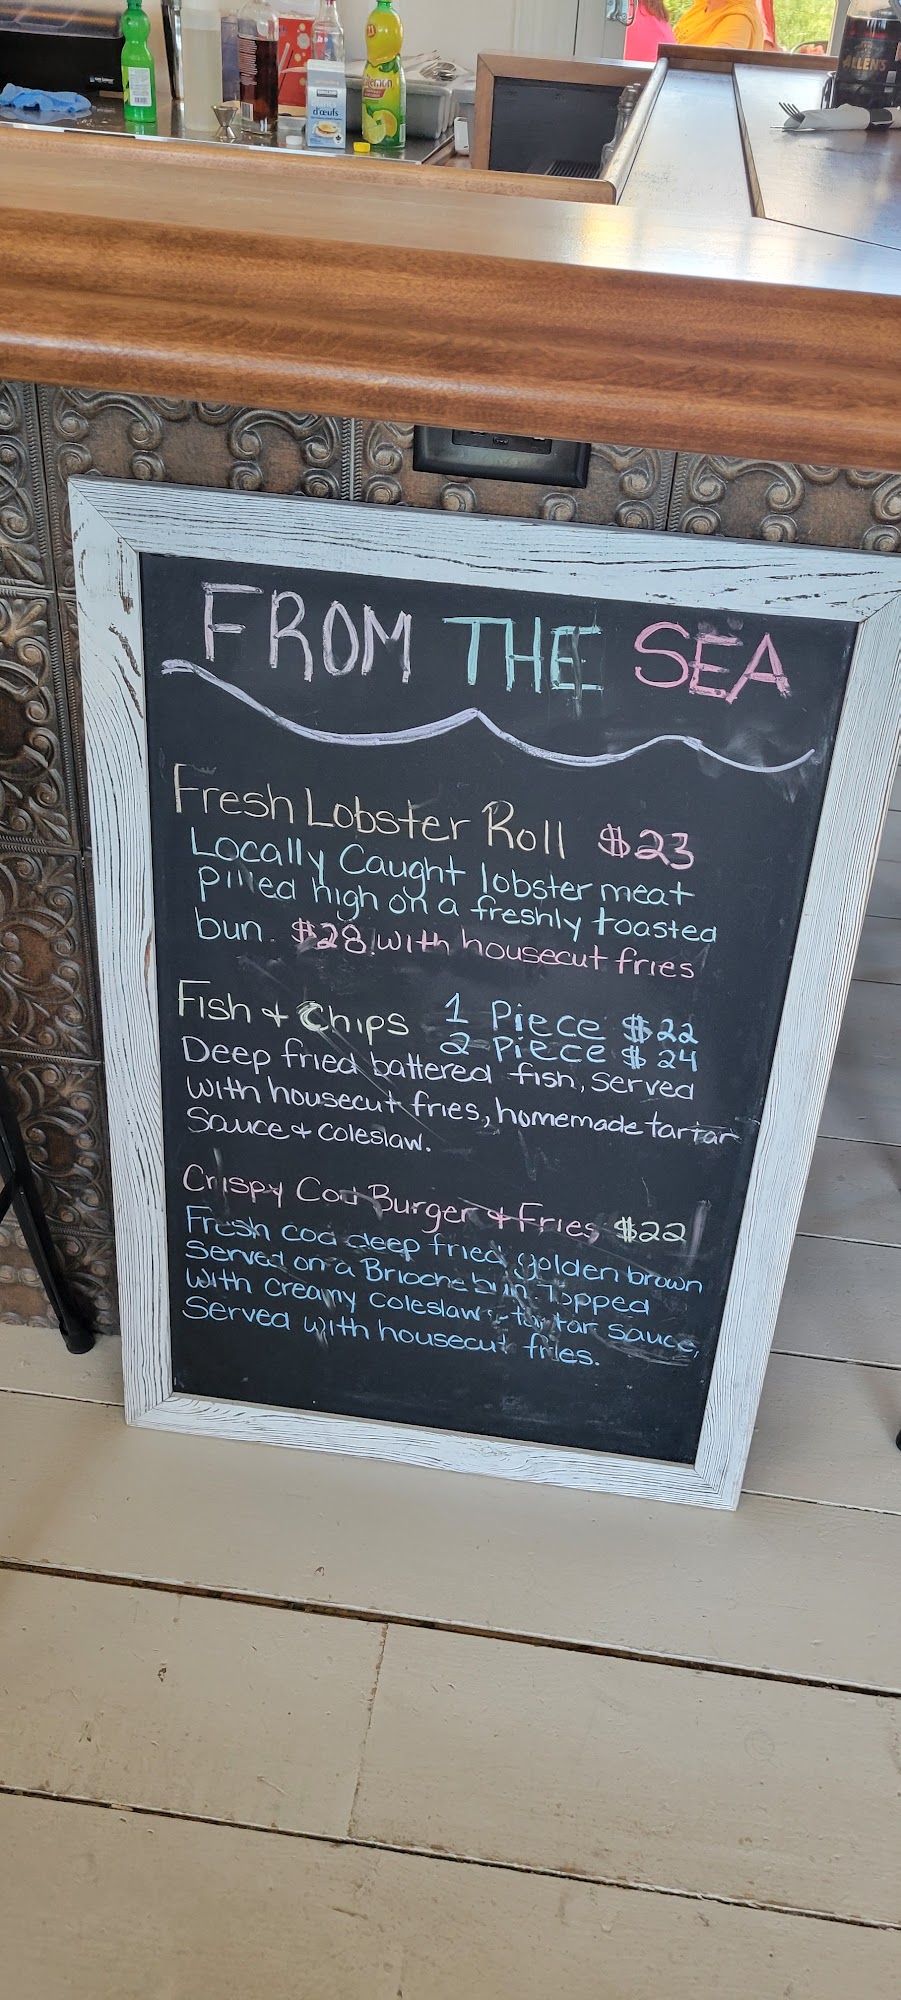 d'œufs
ALLEN'S
FROM THE SEA
Fresh Lobster Roll $23
Locally Caught lobster meat
pilled high on a freshly toasted
bun. $28 with housecut fries
Fish & Chips 1 Piece $22
2 Piece $24
Deep fried battered fish, served
with housecut fries, homemade tartar
Sauce & coleslaw.
Crispy Cod Burger & Fries $22
Fresh cod deep fried golden brown
Served on a Brioche bun. Topped
with creamy coleslaw & tartar sauce,
Served with housecut fries.